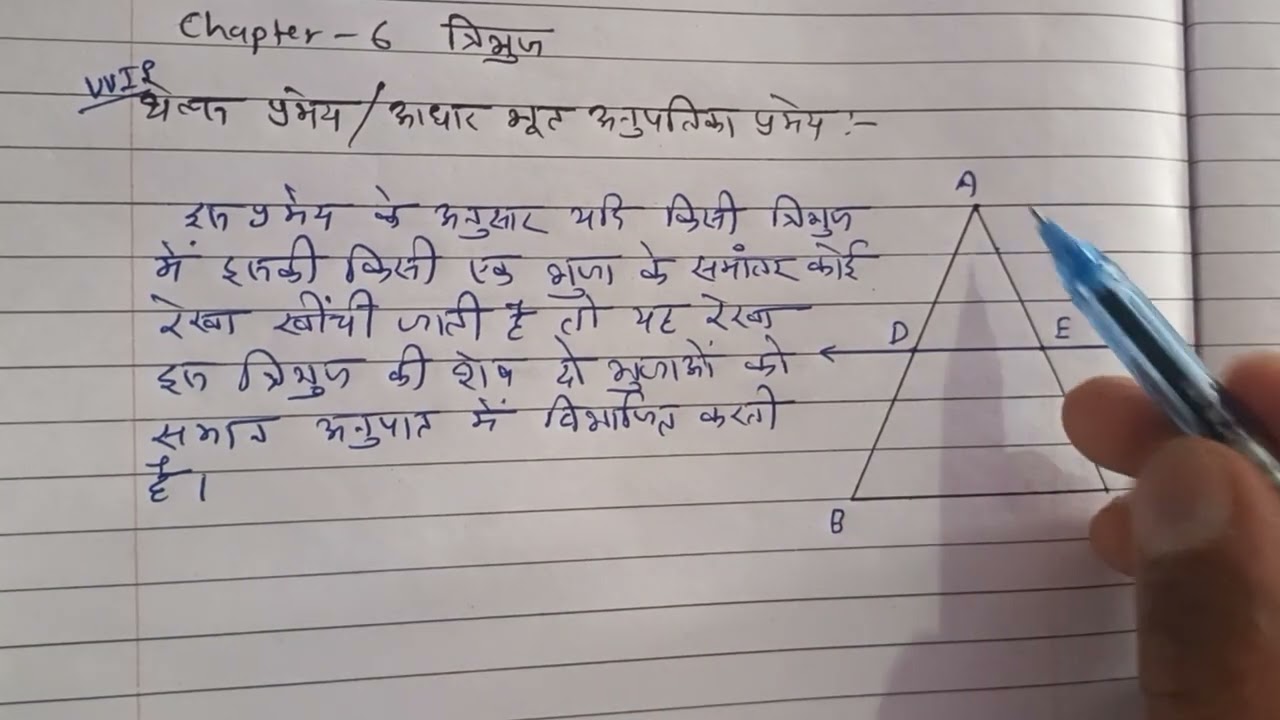 Chapter - 6 त्रिभुज
VVI
थेल्स प्रमेय / आधार भूत अनुपतिका प्रमेय :-
इस प्रमेय के अनुसार यदि किसी त्रिभुज
में इसकी किसी एक भुजा के समांतर कोई
रेखा खींची जाती है तो यह रेखा
इस त्रिभुज की शेष दो भुजाओं को
समान अनुपात में विभाजित करती
है।
A
D
E
B